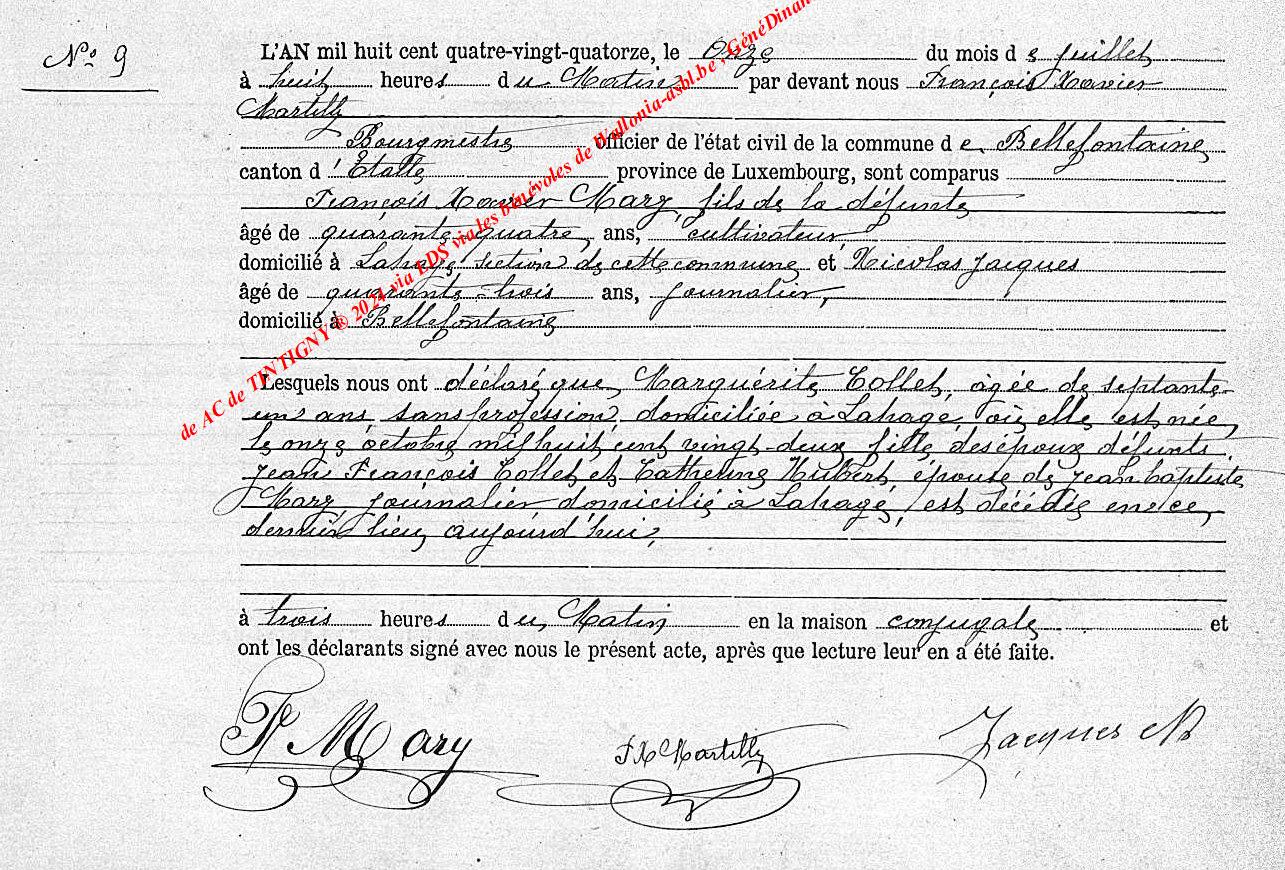 N° 9
L'AN mil huit cent quatre-vingt-quatorze, le Onze du mois de juillet
à huit heures du Matin par devant nous François Xavier
Martilly
Bourgmestre officier de l'état civil de la commune de Bellefontaine,
canton d'Etalle province de Luxembourg, sont comparus
François Xavier Mary, fils de la défunte
âgé de quarante-quatre ans, cultivateur
domicilié à Lahage, section de cette commune et Nicolas Jacques
âgé de quarante-trois ans, journalier,
domicilié à Bellefontaine
Lesquels nous ont déclaré que, Marguérite Collet, âgée de septante-
un ans, sans profession, domiciliée à Lahage, où elle est née,
le onze octobre mil huit cent vingt-deux, fille des époux défunts
Jean François Collet et Catherine Hubert, épouse de Jean baptiste
Mary, journalier domicilié à Lahage, est décédée en ce,
dernier lieu, aujourd'hui,
à trois heures du Matin en la maison conjugale et
ont les déclarants signé avec nous le présent acte, après que lecture leur en a été faite.
F Mary FX Martilly Jacques N
de AC de TINTIGNY ® 2024 via EDS via les bénévoles de Wallonia-asbl.be, GénéDinan